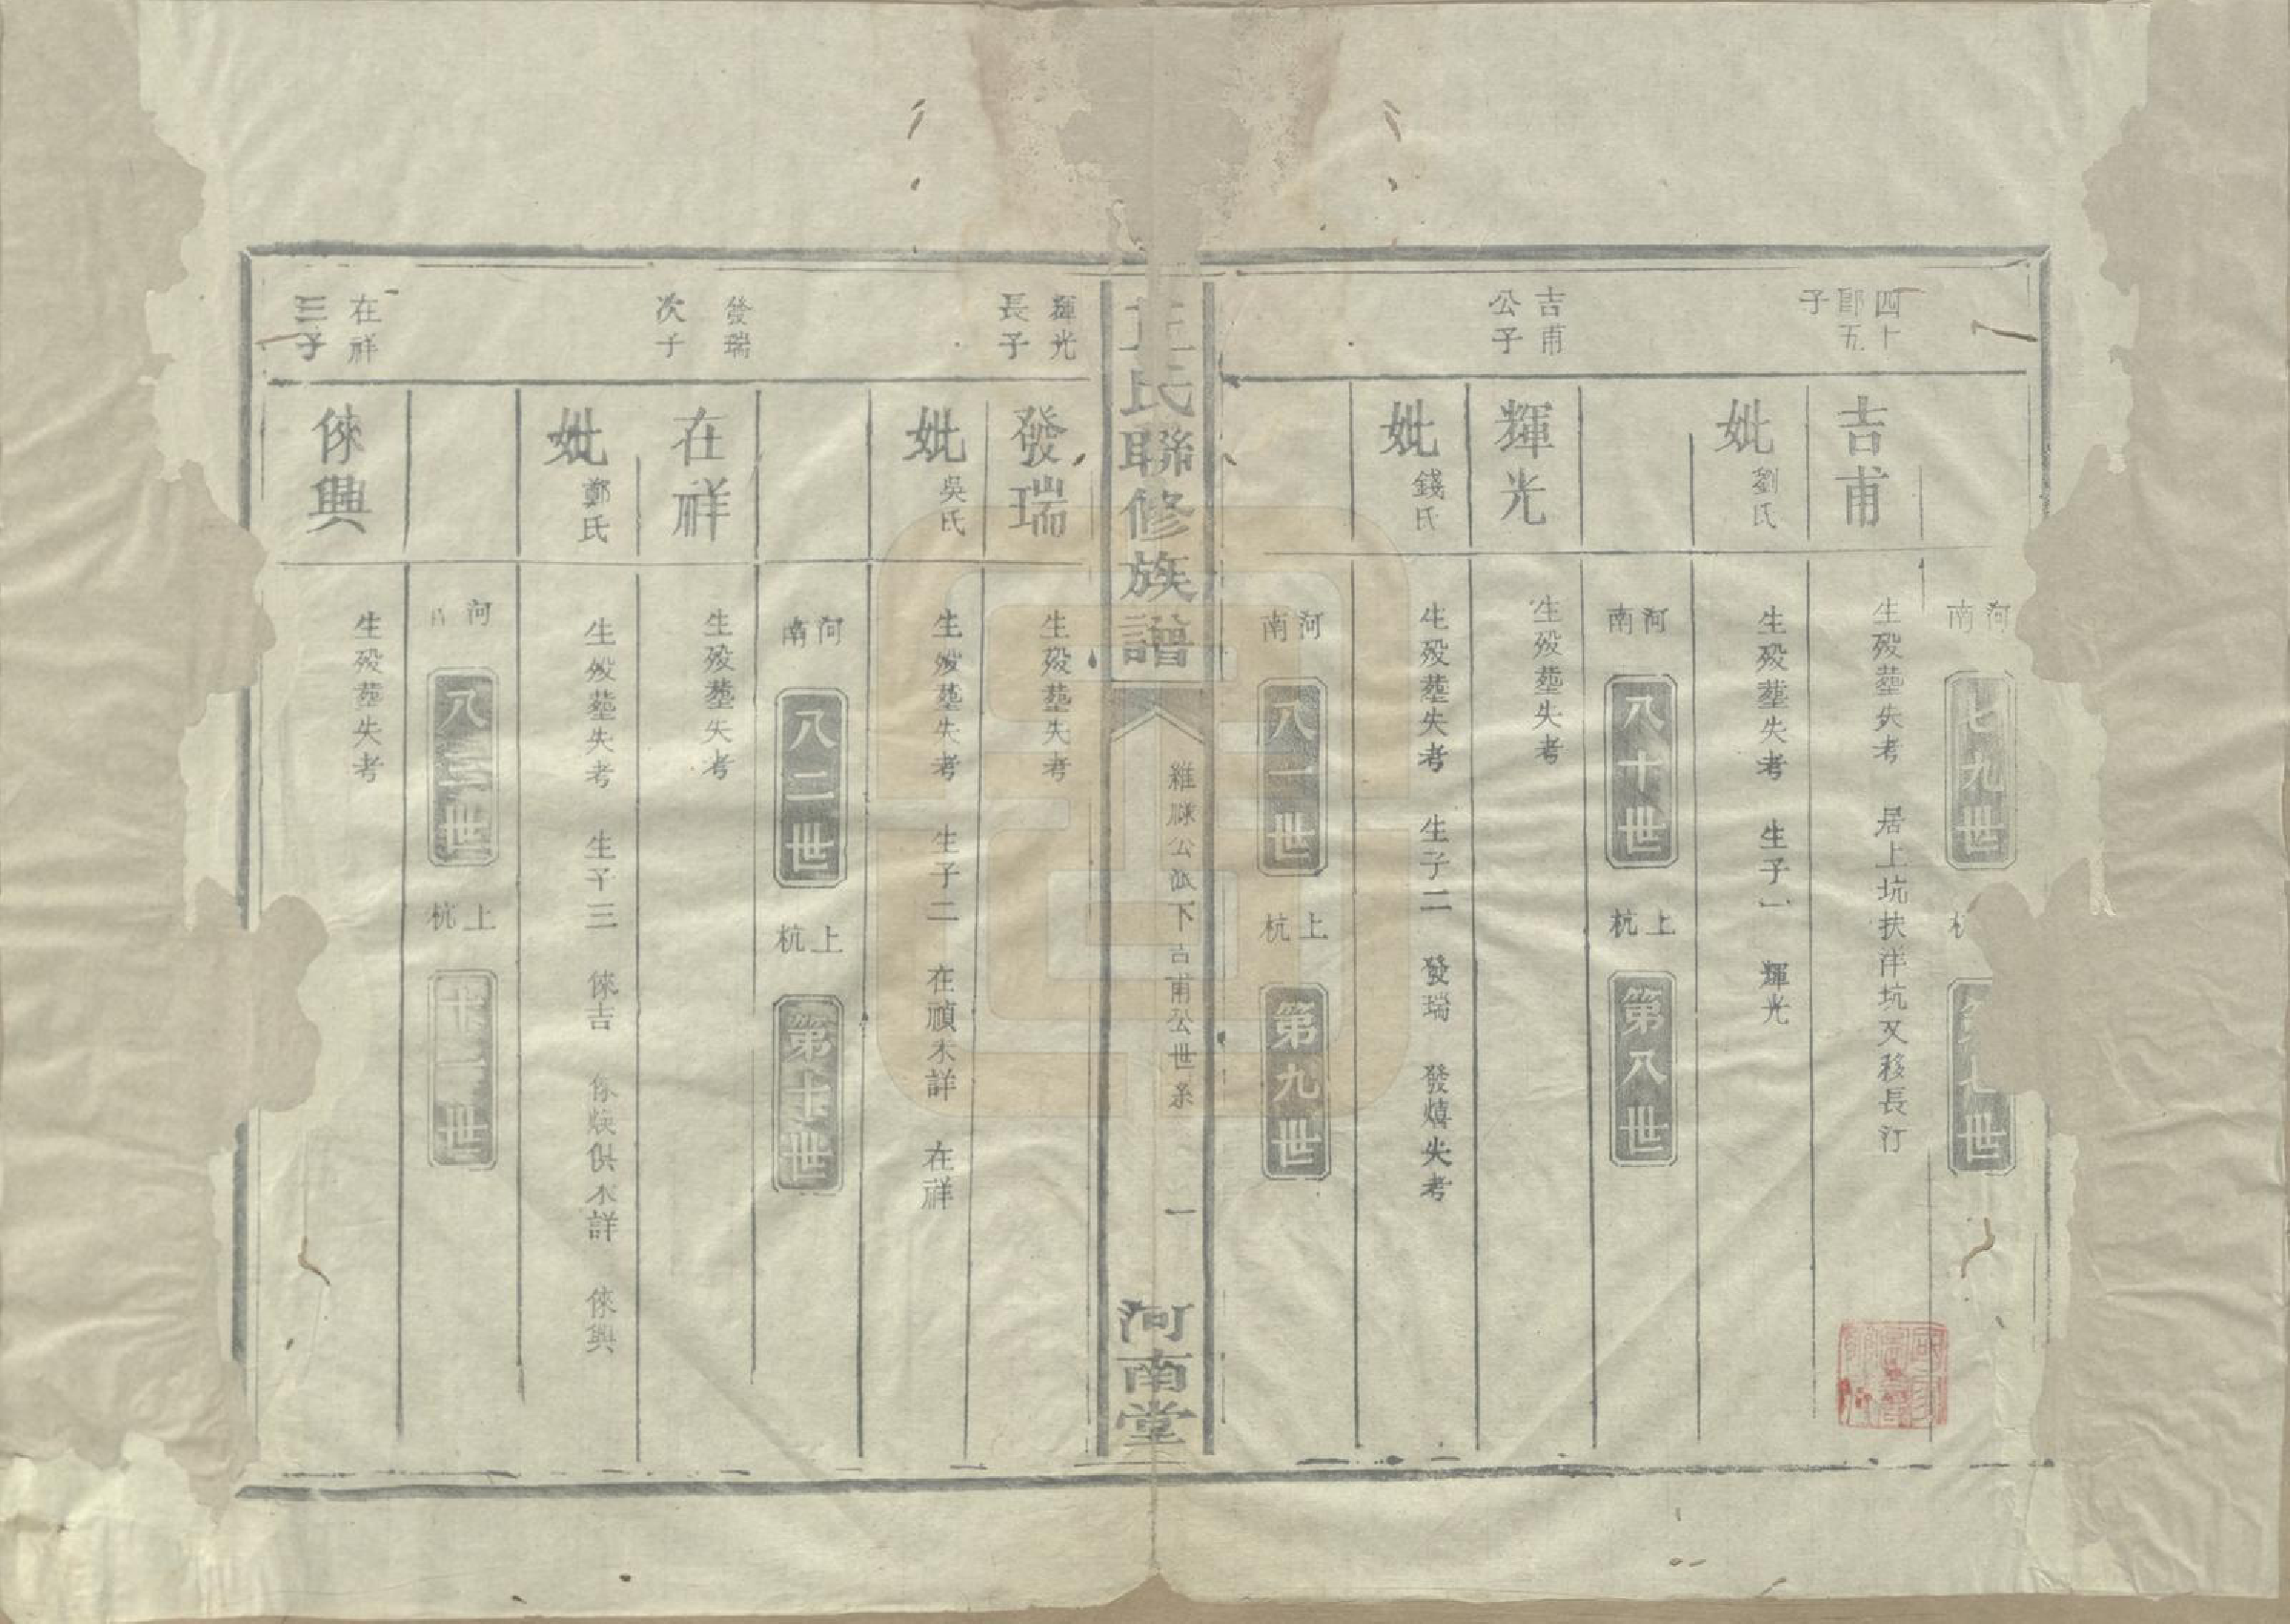 河南 七九世
世
四十
郎五
子
吉甫 生殁塟失考 居上坑扶洋坑又移長汀
妣劉氏 生殁塟失考 生子一 輝光
河南 八十世 上杭 第八世
吉甫
公子
輝光 生殁塟失考
妣錢氏 生殁塟失考 生子二 發瑞 發熺失考
河南 八一世 上杭 第九世
氏聯修族譜 公派下吉甫公世系 一 河南堂
輝光
長子
發瑞 生殁塟失考
妣吳氏 生殁塟失考 生子二 在禎未詳 在祥
河南 八二世 上杭 第十世
發瑞
次子
在祥 生殁塟失考
妣鄭氏 生殁塟失考 生子三 倈吉 倈煐俱未詳 倈興
河 八三世 上杭 十一世
在祥
三子
倈興 生殁塟失考